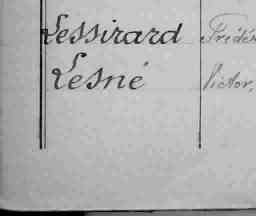 Lessirard Frédér
Lesné Victor,